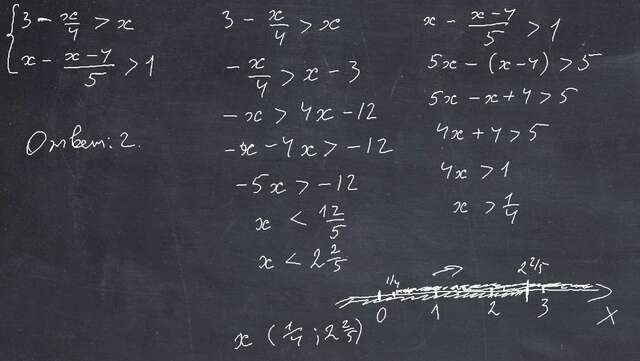 3 - x/4 > x
x - (x-4)/5 > 1
Ответ: 2.
3 - x/4 > x
-x/4 > x - 3
-x > 4x - 12
-x - 4x > -12
-5x > -12
x < 12/5
x < 2 2/5
x (1/4 ; 2 2/5)
x - (x-4)/5 > 1
5x - (x-4) > 5
5x - x + 4 > 5
4x + 4 > 5
4x > 1
x > 1/4
1/4 2 2/5
0 1 2 3 X